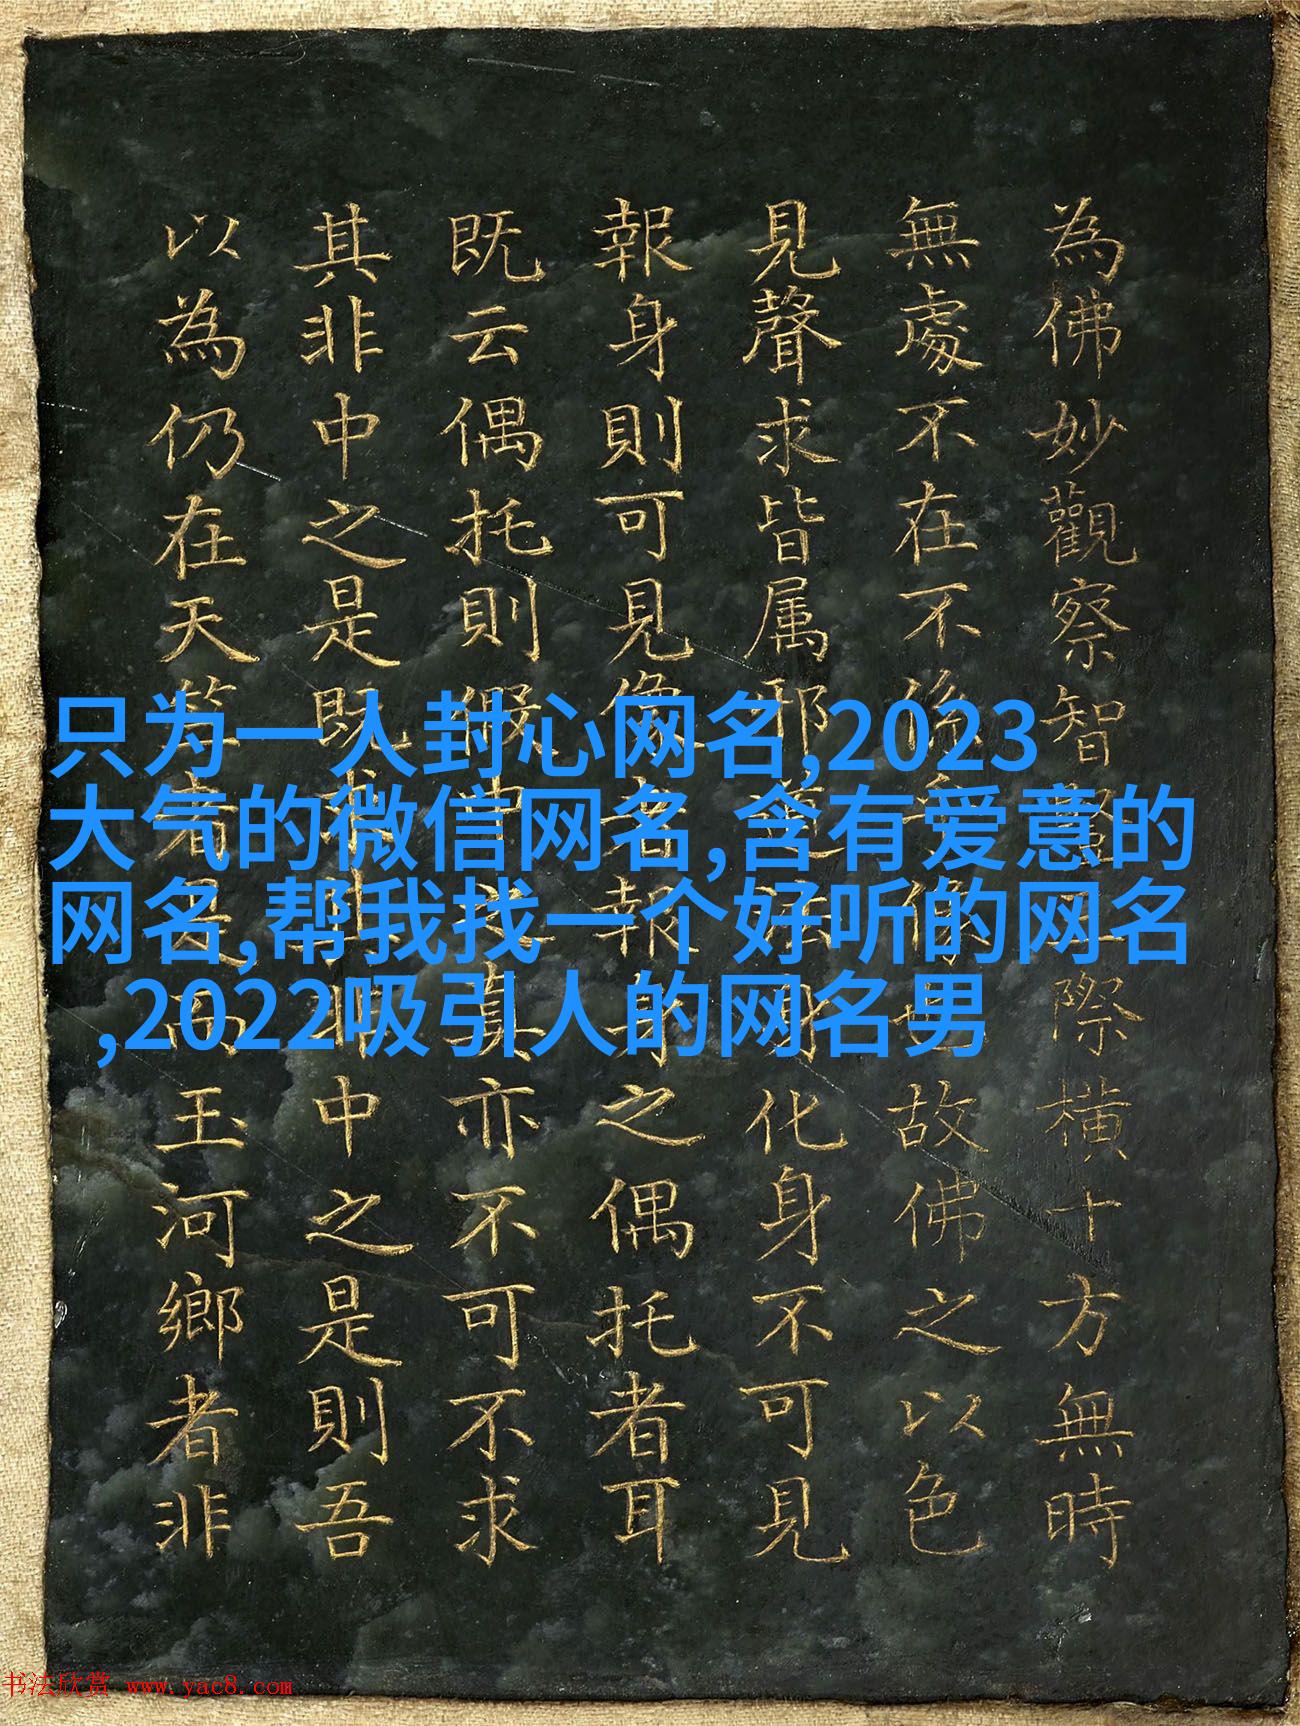 為佛妙觀察智盡際橫十方無時
無處不在不係像也故佛之以色
見聲求皆属邪道法則化身不可見
報身則可見像者報身之偶托者耳
既云偶托則假中真亦不可不求
其非中之是既非中之是則吾
以為仍在天竺者是而玉河鄉者非
只为一人封心网名,2023
大气的微信网名,含有爱意的
网名,帮我找一个好听的网名
,2022吸引人的网名男
书法欣赏 www.yac8.com